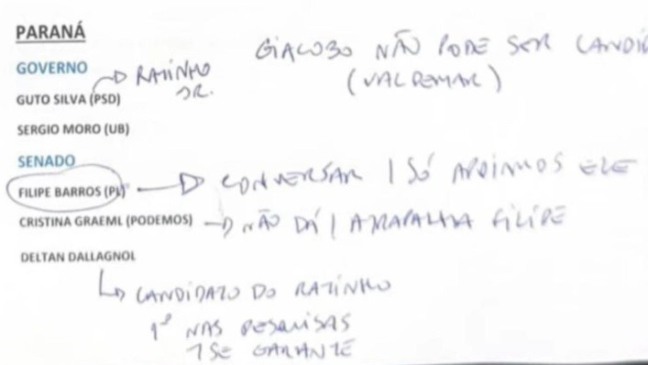 PARANÁ
GIACOBO NÃO PODE SER CANDID
(VALDEMAR)
GOVERNO
RATINHO JR.
GUTO SILVA (PSD)
SERGIO MORO (UB)
SENADO
FILIPE BARROS (PL) CONVERSAR / SÓ APOIAMOS ELE
CRISTINA GRAEML (PODEMOS) NÃO DÁ / ATRAPALHA FILIPE
DELTAN DALLAGNOL
CANDIDATO DO RATINHO
1º NAS PESQUISAS
SE GARANTE